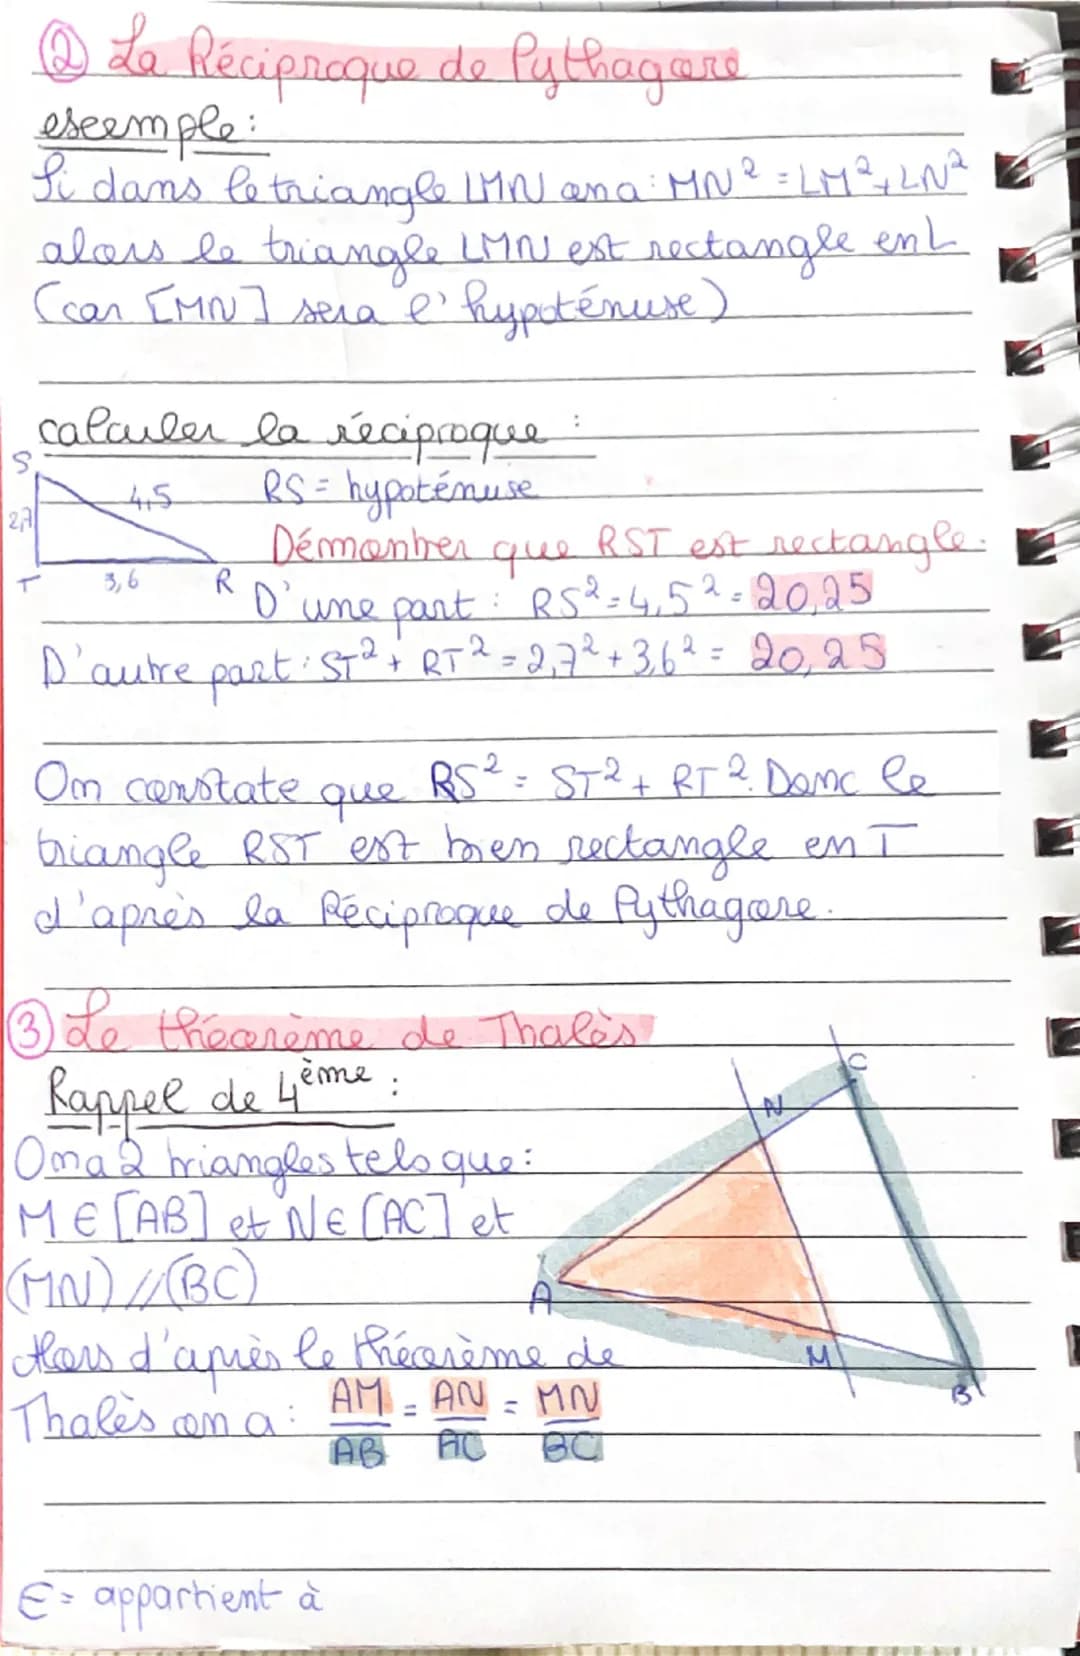 ② La Réciproque de Pythagore
exemple:
Si dans le triangle LMN on a: MN² = LM² + LN²
alors le triangle LMN est rectangle en L
(car [MN] sera l'hypoténuse)
calculer la réciproque :
S
4,5
RS = hypoténuse
2,7
Démontrer que RST est rectangle.
T
3,6
R
D'une part : RS² = 4,5² = 20,25
D'autre part : ST² + RT² = 2,7² + 3,6² = 20,25
On constate que RS² = ST² + RT². Donc le
triangle RST est bien rectangle en T
d'après la Réciproque de Pythagore.
③ Le théorème de Thalès
Rappel de 4ème :
C
N
On a 2 triangles tels que :
M ∈ [AB] et N ∈ [AC] et
(MN) // (BC)
A
Alors d'après le théorème de
M
B
Thalès on a : AM/AB = AN/AC = MN/BC
∈ = appartient à